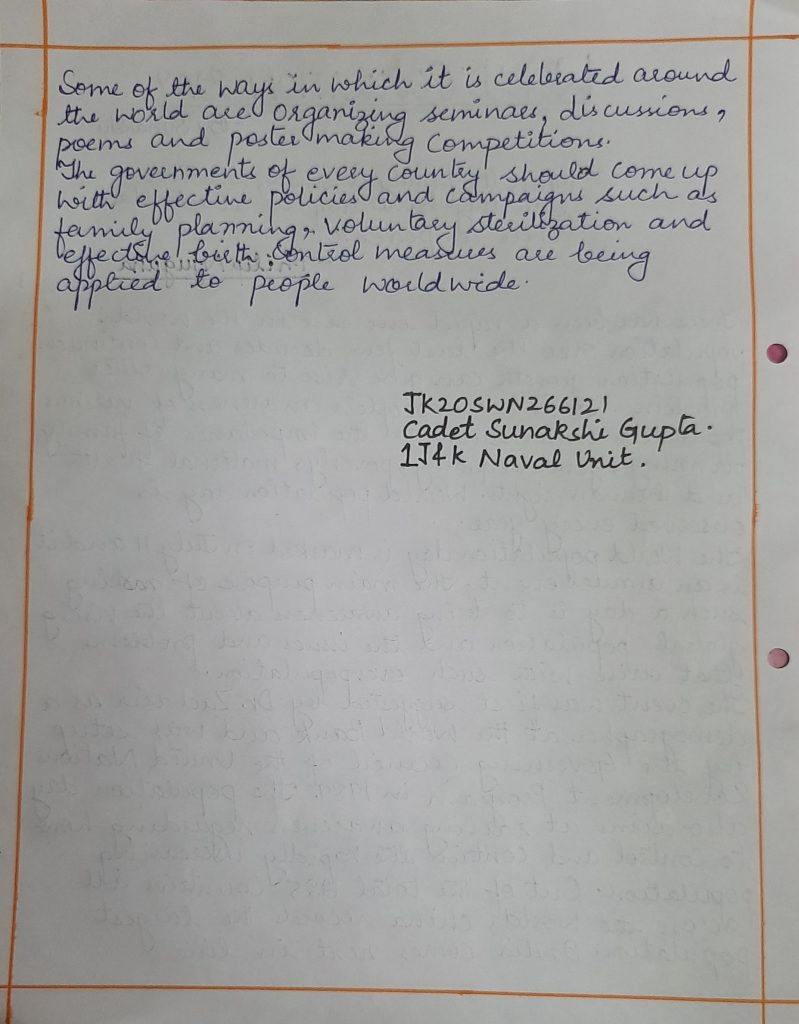 Some of the ways in which it is celebrated around
the world are organizing seminars, discussions,
poems and poster making competitions.
The governments of every country should come up
with effective policies and campaigns such as
family planning, voluntary sterilization and
effective birth control measures are being
applied to people worldwide.
JK20SWN266121
Cadet Sunakshi Gupta.
1J&K Naval Unit.